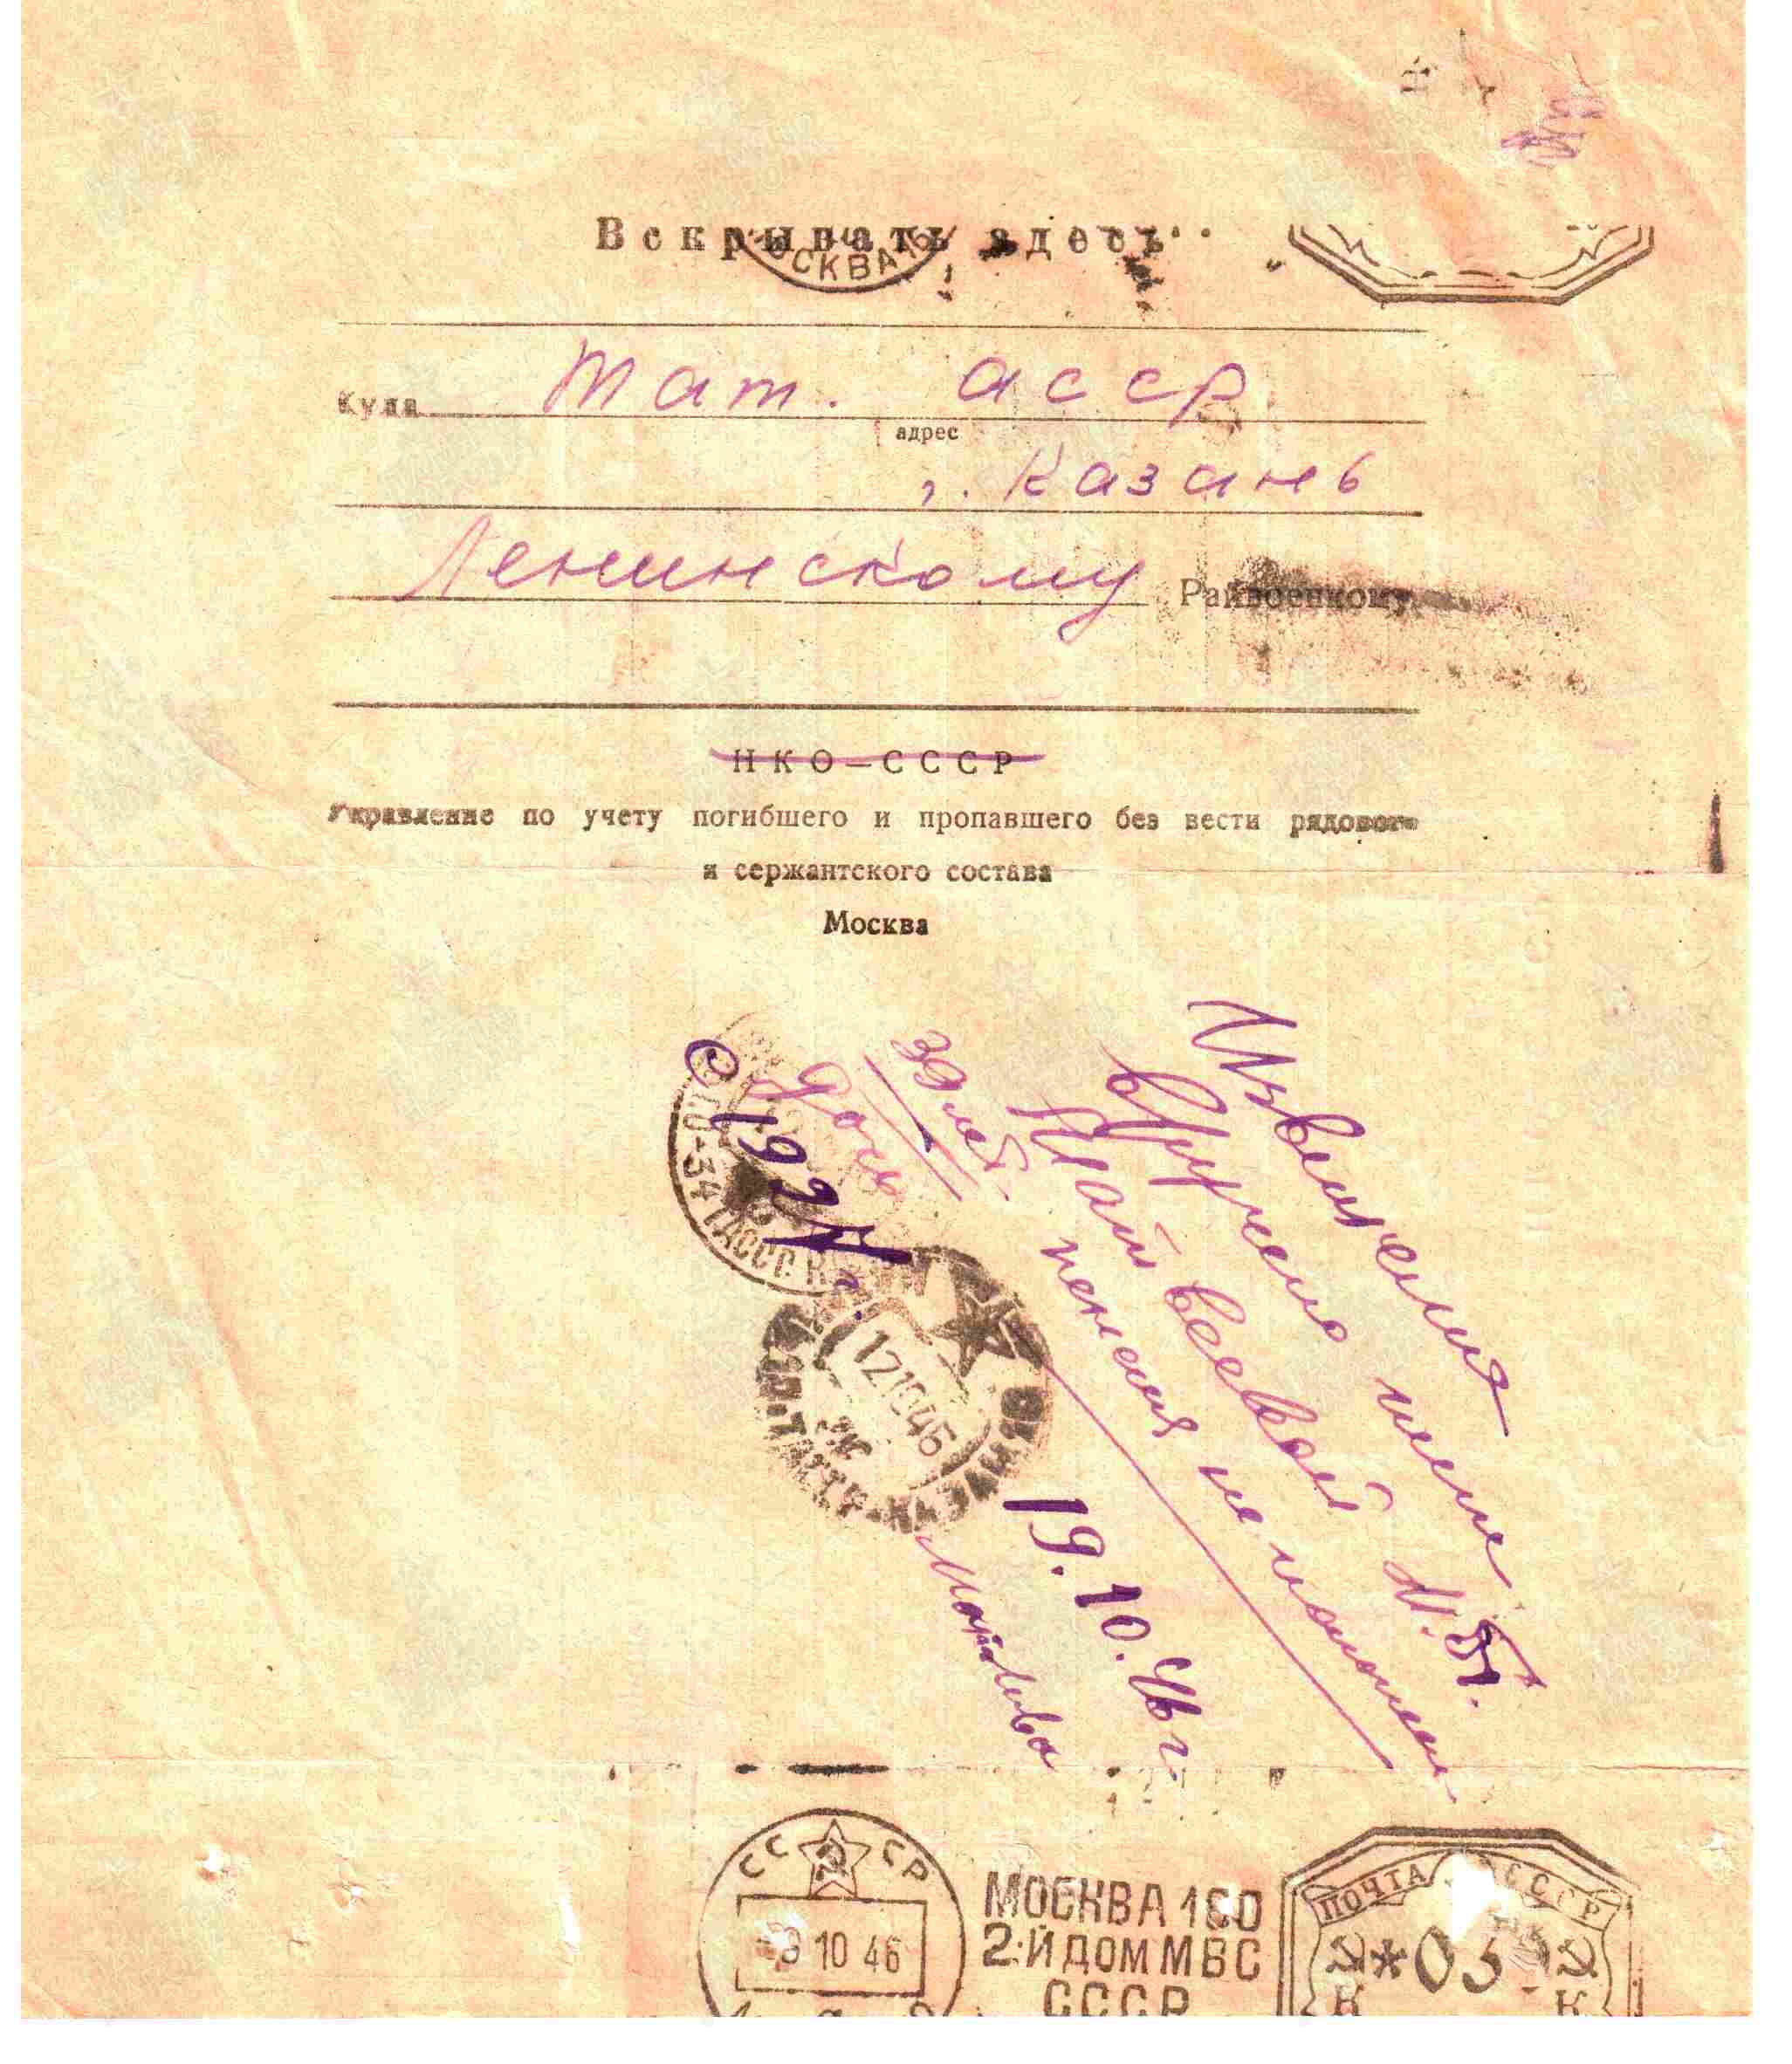 Вскрывать здесь
МОСКВА
Куда Тат. асср
адрес
г. Казань
Ленинскому Райвоенкому
НКО—СССР
Управление по учету погибшего и пропавшего без вести рядового
и сержантского состава
Москва
Извещения
вручено
пенсия не
39 лет
дочь
с 1927 г.
19.10.46 г.
12 10 46
СССР
9 10 46
МОСКВА 160
2-Й ДОМ МВС
СССР
ПОЧТА СССР
*03
К К